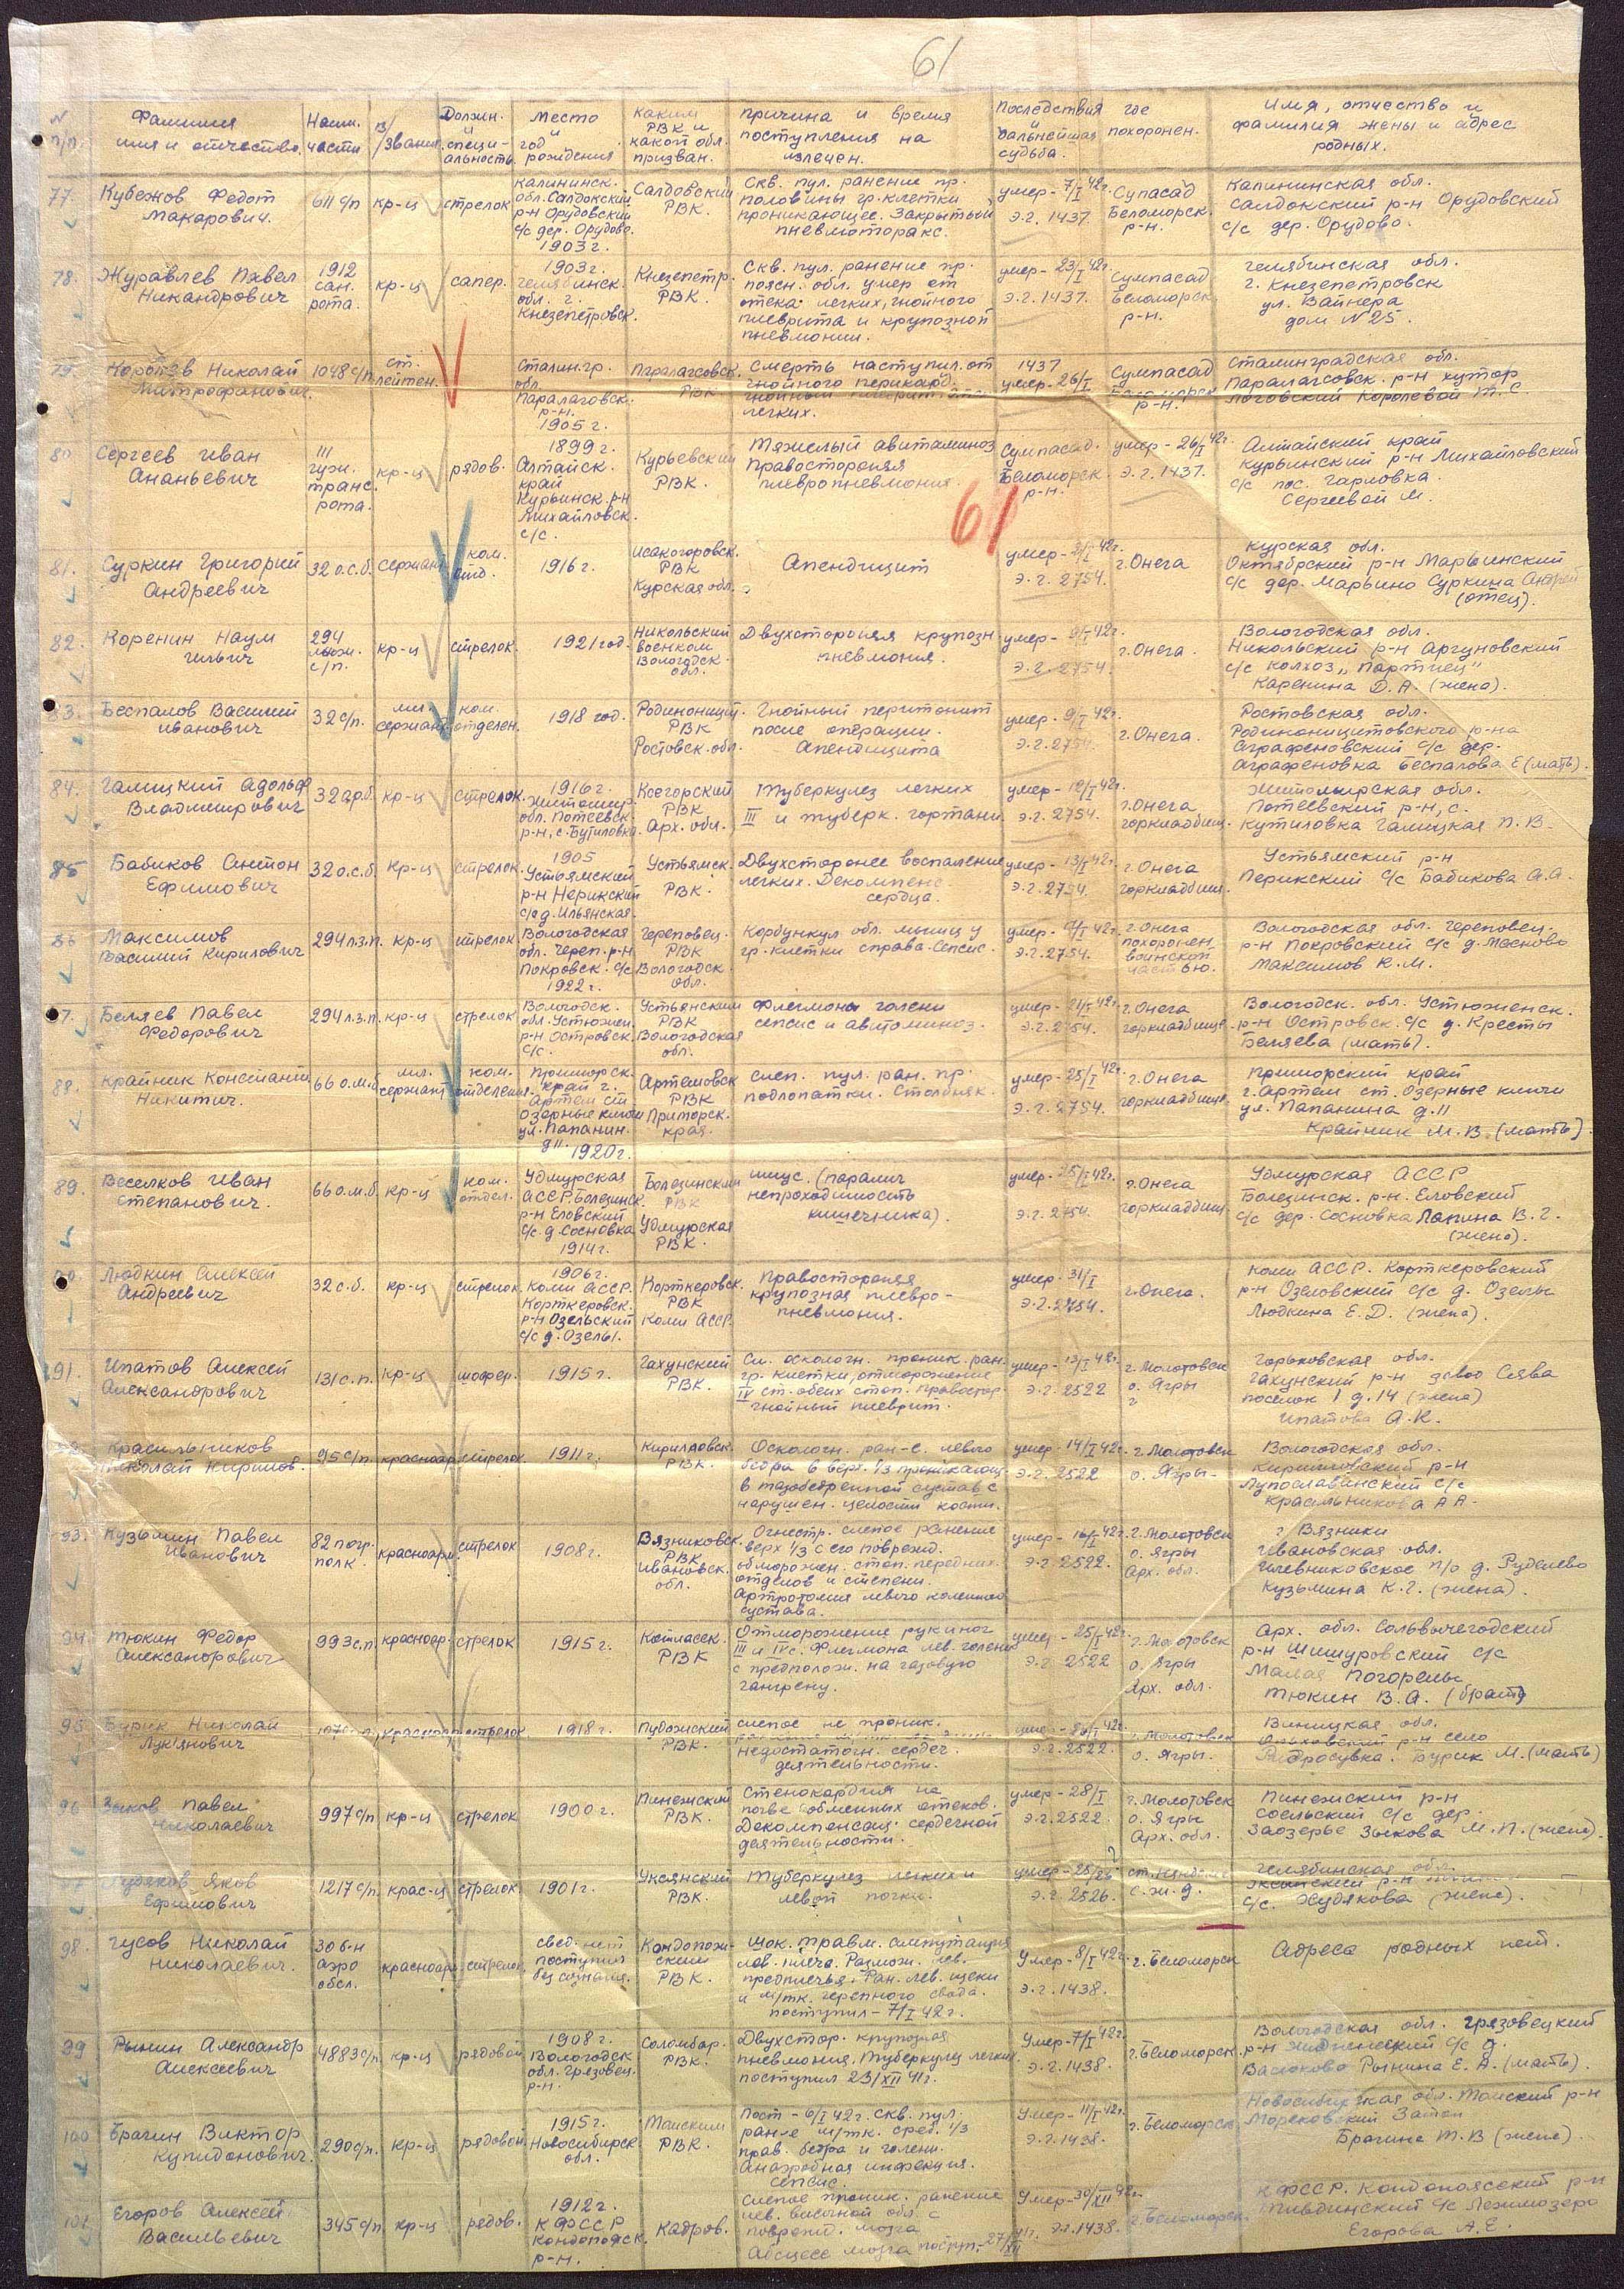 61
N п/п.
Фамилия имя и отчество.
Наим. части
В/звание.
Должн. и специальность.
Место и год рождения
Каким РВК и какой обл. призван.
Причина и время поступления на излечен.
Последствия и дальнейшая судьба.
где похоронен.
Имя, отчество и фамилия жены и адрес родных.
77. Кубежов Федот Макарович.
611 с/п
кр-ц
стрелок
Калининск. обл. Салдокский р-н Орудовский с/с дер. Орудово. 1903 г.
Салдовский РВК.
Скв. пул. ранение пр. половины гр. клетки проникающее. Закрытый пневмоторакс.
умер - 7/I 42г. э.г. 1437.
Супасад Беломорск. р-н.
Калининская обл. Салдокский р-н Орудовский с/с дер. Орудово.
78. Журавлев Павел Никандрович
1912 сан. рота.
кр-ц
сапер.
1903 г. Челябинск. обл. г. Кнезепетровск.
Кнезепетр. РВК.
Скв. пул. ранение пр. поясн. обл. умер от отека легких, гнойного плеврита и крупозной пневмонии.
умер - 23/I 42г. э.г. 1437.
Сумпасад Беломорск р-н.
Челябинская обл. г. Кнезепетровск ул. Вайнера дом N 25.
79. Николай Митрофанович.
1048 с/п
ст. лейтен.
Сталингр. обл. Паралаговск. р-н. 1905 г.
Паралаговск. РВК
Смерть наступил. от гнойного перикард. легких.
1437 умер - 26/I
Сумпасад р-н.
Сталинградская обл. Паралаговск. р-н хутор Логовский Королевой Т. С.
80 Сергеев Иван Ананьевич
III гуж. транс. рота.
кр-ц
рядов.
1899 г. Алтайск. край Курьинск. р-н Михайловск. с/с.
Курьевский РВК.
Тяжелый авитаминоз Правостороняя плевропневмония.
Сумпасад. Беломорск. р-н.
умер - 26/I 42г. э.г. 1437.
Алтайский край Курьинский р-н Михайловский с/с пос. Гарловка. Сергеевой М.
61
81. Суркин Григорий Андреевич
32 о.с.б.
сержант
ком. отд.
1916 г.
Исакогоровск. РВК Курская обл.
Апендицит
умер - 42г. э.г. 2754.
г. Онега
Курская обл. Октябрский р-н Марьинский с/с дер. Марьино Суркина Андрей (отец).
82. Коренин Наум Ильич
294 лыж. с/п.
кр-ц
стрелок.
1921 год.
Никольский военком Вологодск. обл.
Двухстороняя крупозн пневмония.
умер - 9/I 42г. э.г. 2754.
г. Онега.
Вологодская обл. Никольский р-н Аргуновский с/с колхоз „Партиец" Каренина Д. А. (жена).
83. Беспалов Василий Иванович
32 с/п.
мл. сержант
ком. отделен.
1918 год.
Родиноницит. РВК Ростовск. обл.
Гнойный перитонит после операции. Апендицита
умер - 9/I 42г. э.г. 2754.
г. Онега.
Ростовская обл. Родинонищитовского р-на Аграфеновский с/с дер. Аграфеновка Беспалова Е (мать).
84. Галицкий Адольф Владимирович
кр-ц
стрелок.
1916 г. Житомир. обл. Потеевск. р-н, с. Бутиловка
Ксегорский РВК Арх. обл.
Туберкулез легких III и туберк. гортани.
умер - 12/I 42г. э.г. 2754.
г. Онега горкладбищ.
Житомырская обл. Потеевский р-н, с. Кутиловка Галицкая П. В.
85 Бабиков Антон Ефимович
32 о.с.б.
кр-ц
стрелок.
1905 Устьямский р-н Нерикский с/с д. Ильянская.
Устьямск. РВК.
Двухсторонее воспаление легких. Декомпенс. сердца.
умер - 13/I 42г. э.г. 2754.
г. Онега горкладбищ.
Устьямский р-н Перикский с/с Бабикова А. А.
86 Максимов Василий Кирилович
294 л.з.п.
кр-ц
стрелок
Вологодская обл. Череп. р-н Покровск. с/с 1922 г.
Череповец. РВК Вологодск. обл.
Корбункул обл. мышц у гр. клетки справа. Сепсис.
умер - 42г. э.г. 2754.
г. Онега похоронен воинской частью.
Вологодская обл. Череповец. р-н Покровский с/с д. Максимов К. М.
87. Беляев Павел Федорович
294 л.з.п.
кр-ц
стрелок
Вологодск. обл. Устюжен. р-н Островск. с/с.
Устьянским РВК Вологодская обл.
Флегмоны голени сепсис и авитоминоз.
умер - 21/I 42г. э.г. 2754.
г. Онега горкладбище
Вологодск. обл. Устюженск. р-н Островск. с/с д. Кресты Беляева (мать).
88. Крайник Констант Никитич.
66 о.м.б.
мл. сержант
ком. отделения.
Приморск. край г. Артем ст. Озерные ключи ул. Папанин. д 11. 1920 г.
Артемовск РВК Приморск. края.
Слеп. пул. ран. пр. подлопатки. Столбняк.
умер - 25/I 42г. э.г. 2754.
г. Онега горкладбище
Приморский край г. Артем ст. Озерные ключи ул. Папанина д. 11 Крайник М. В. (мать).
89. Веселков Иван Степанович.
66 о.м.б.
кр-ц
ком. отдел.
Удмурская АССР. Болезинск. р-н Еловский с/с. д. Сосновка 1914 г.
Болезинским РВК Удмурская РВК.
илус. (паралич непроходимость кишечника).
умер - 25/I 42г. э.г. 2754.
г. Онега горкладбищ.
Удмурская АССР Болезинск. р-н. Еловский с/с дер. Сосновка Лапина В. Г. (жена).
90. Людкин Алексей Андреевич
32 с.б.
кр-ц
стрелок
1906 г. Коми АССР. Корткеровск. р-н Озельский с/с д. Озелы.
Корткеровск. РВК Коми АССР.
Правостороняя крупозная плевропневмония.
умер - 31/I э.г. 2754.
г. Онега.
Коми АССР. Корткеровский р-н Озеловский с/с д. Озелы Людкина Е. Д. (жена).
91. Ипатов Алексей Александрович
131 с.п.
кр-ц
шофер.
1915 г.
Гахунский РВК.
Сл. оскологн. проник. ран. гр. клетки, отморожение IV ст. обеих стоп. Правостор. гнойный плеврит.
умер - 13/I 42г. э.г. 2522
г. Молотовск о. Ягры
Горьковская обл. Гахунский р-н завод Сява поселок 1 д. 14 (жена) Ипатова А. К.
Красильников Николай Кирилов.
95 с/п.
красноар
стрелок
1911 г.
Кирилловск. РВК.
Оскологн. ран-е. левого бедра в верх. 1/3 проникающ. в тазобедренной сустав с нарушен. целости кости.
умер - 14/I 42г. э.г. 2522
г. Молотовск о. Ягры
Вологодская обл. Кирилловский р-н с/с Красильникова А А.
93. Кузьмин Павел Иванович
82 погр. полк.
красноарм.
стрелок
1908 г.
Вязниковск. РВК Ивановск. обл.
Огнестр. слепое ранение верх 1/3 с его поврежд. обморожен. стоп. передних отделов и степени. Артротомия левого коленного сустава.
умер - 16/I 42г. э.г. 2522.
г. Молотовск о. Ягры Арх. обл.
г Вязники Ивановская обл. п/о д. Руделево Кузьмина К. Г. (жена).
94. Тюкин Федор Александрович
993 с.п.
красноар.
стрелок
1915 г.
Котласск. РВК
Отморожение рук и ног III и IV с. Флегмона лев. голени с предположи. на газовую гангрену.
умер - 25/I 42г. э.г. 2522
г. Молотовск о. Ягры Арх. обл.
Арх. обл. Сольвычегодский р-н Шишуровский с/с Малая Погорелье Тюкин В. А. (брат)
95 Бурик Николай Лукьянович
красноар.
стрелок.
1918 г.
Пудожский РВК.
слепое не проник. недостаточн. сердеч. деятельности.
умер - 42г. э.г. 2522.
г. Молотовск о. Ягры.
Виницкая обл. р-н село Бурик М. (мать)
96 Зыков Павел Николаевич
997 с/п
кр-ц
стрелок
1900 г.
Пинежский РВК.
Стенокардия на почве обменных отеков. Декомпенсац. сердечной деятельности.
умер - 28/I э.г. 2522.
г. Молотовск о. Ягры Арх. обл.
Пинежский р-н Соельский с/с дер. Заозерье Зыкова М. П. (жена).
Яков Ефимович
1217 с/п.
крас-ц
стрелок
1901 г.
Уксянский РВК.
Туберкулез легких и левой почки.
умер - э.г. 2526.
Челябинская обл. р-н с/с. Худякова (жена).
98. Гусов Николай Николаевич.
30 б-н аэро обсл.
красноарм
стрелок
свед. нет поступил без сознания.
Кондопожский РВК.
Шок. травм. ампутация лев. плеча. Размож. лев. предплечья. Ран. лев. щеки и м/тк. черепного свода. поступил - 7/I 42 г.
Умер - 8/I 42г. э.г. 1438.
г. Беломорск
Адреса родных нет.
99 Рынин Александр Алексеевич
4883 с/п.
кр-ц
рядовой
1908 г. Вологодск обл. Грязовец. р-н.
Соломбар. РВК.
Двухстор. крупозная пневмония. Туберкулез легких поступил 23/XII 41г.
Умер - 7/I 42г. э.г. 1438.
г. Беломорск.
Вологодская обл. Грязовецкий р-н с/с д. Васюково Рынина Е. А. (мать).
100 Брагин Виктор Купидонович.
290 с/п.
кр-ц
рядовой
1915 г. Новосибирск обл.
Томским РВК.
Пост - 6/I 42 г. скв. пул. ран-е м/тк. сред. 1/3 прав. бедра и голени. Анаэробная инфекция. Сепсис.
Умер - 11/I 42г. э.г. 1438.
г. Беломорск
Новосибирская обл. Томский р-н Моряковский Затон Брагина Т. В (жена).
101 Егоров Алексей Васильевич
345 с/п
кр-ц
рядов.
1912 г. К ФССР Кондопожск. р-н.
Кадров.
Слепое проник. ранение лев. височной обл. с поврежд. мозга Абсцесс мозга поступ. - 27/XII 41г.
Умер - 30/XII э.г. 1438.
г. Беломорск.
К ФССР. Кондопожский р-н с/с Лежмозеро Егорова А. Е.